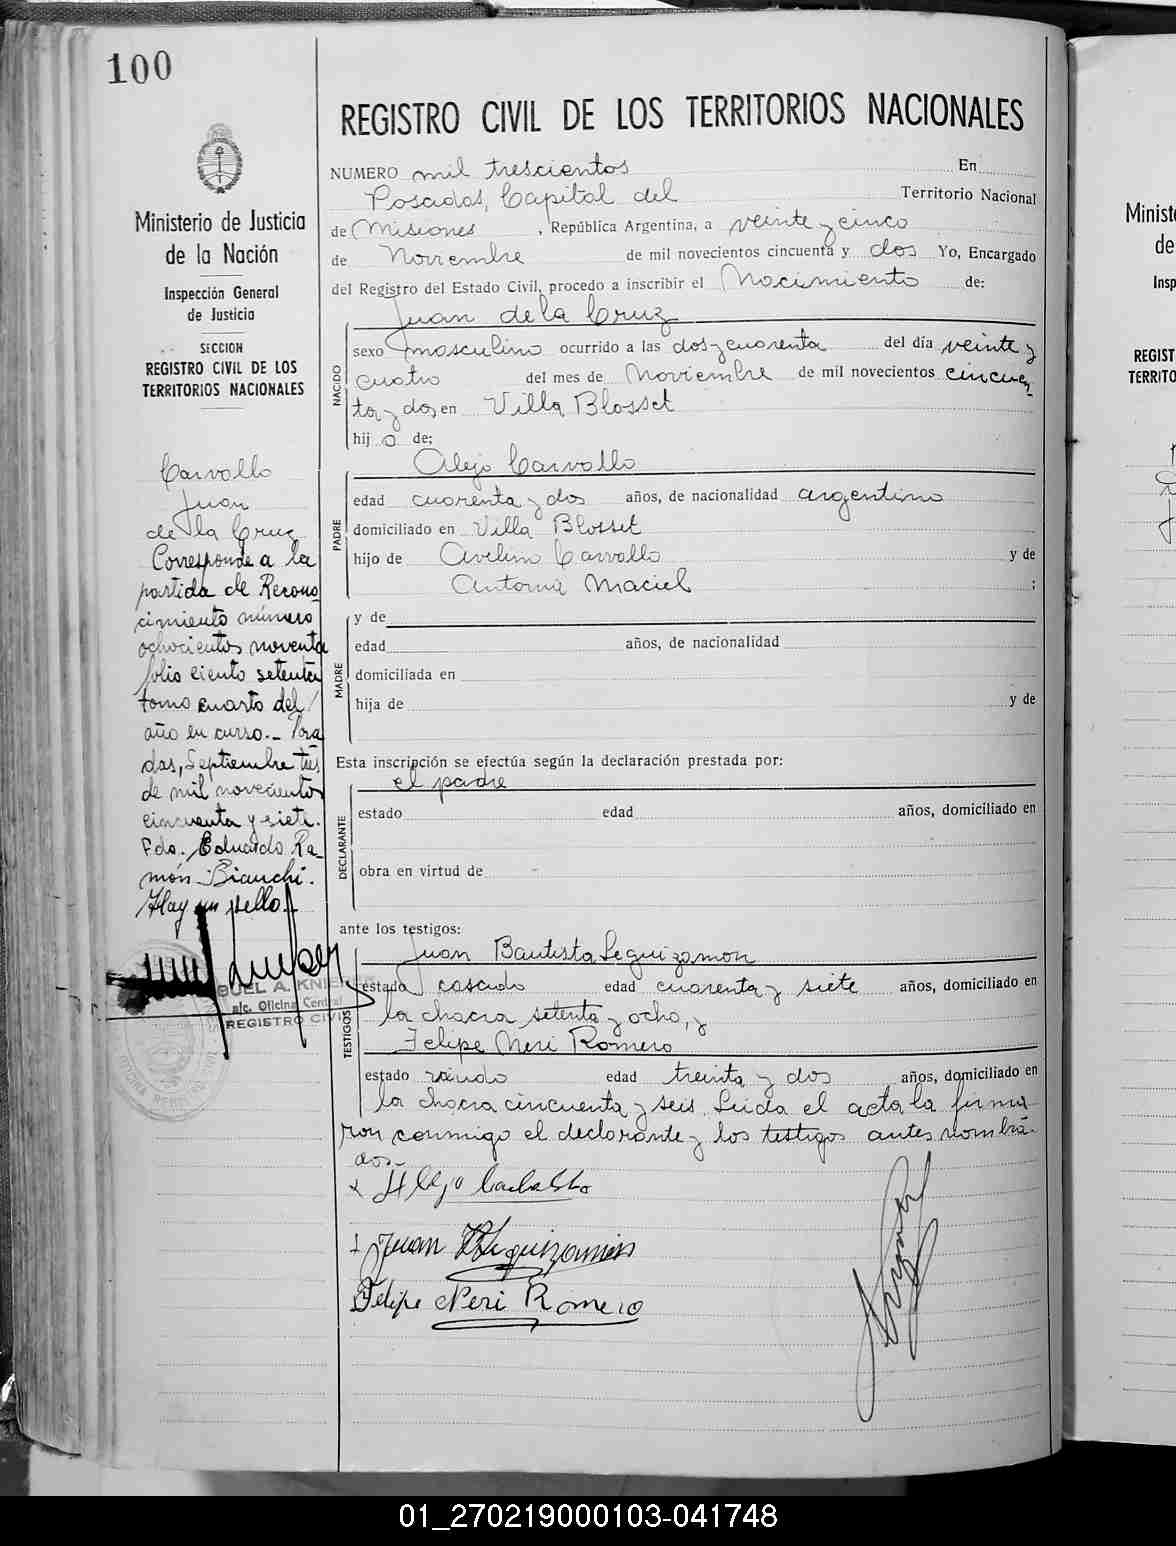 100
REGISTRO CIVIL DE LOS TERRITORIOS NACIONALES
Ministerio de Justicia
de la Nación
Inspección General
de Justicia
SECCION
REGISTRO CIVIL DE LOS
TERRITORIOS NACIONALES
Carvallo
Juan
de la Cruz
Corresponde a la
partida de Recono
cimiento número
ochocientos noventa
folio ciento setenta
tomo cuarto del
año en curso.- Posa
das, Septiembre tres
de mil novecientos
cincuenta y siete.
Fdo. Eduardo Ra-
món Bianchi.
Hay un sello.
A. KNIE
a/c. Oficina Central
REGISTRO CIVIL
NUMERO mil trescientos En
Posadas, Capital del Territorio Nacional
de Misiones, República Argentina, a veinte y cinco
de Noviembre de mil novecientos cincuenta y dos Yo, Encargado
del Registro del Estado Civil, procedo a inscribir el Nacimiento de:
Juan de la Cruz
NACIDO
sexo masculino ocurrido a las dos y cuarenta del día veinte y
cuatro del mes de Noviembre de mil novecientos cincuen
ta y dos en Villa Blosset
hijo de:
Alejo Carvallo
PADRE
edad cuarenta y dos años, de nacionalidad argentino
domiciliado en Villa Blosset
hijo de Avelino Carvallo y de
Antonia Maciel ;
MADRE
y de
edad años, de nacionalidad
domiciliada en
hija de y de
Esta inscripción se efectúa según la declaración prestada por:
el padre
DECLARANTE
estado edad años, domiciliado en
obra en virtud de
ante los testigos:
Juan Bautista Leguizamon
TESTIGOS
estado casado edad cuarenta y siete años, domiciliado en
la chacra setenta y ocho, y
Felipe Neri Romero
estado edad treinta y dos años, domiciliado en
la chacra cincuenta y seis. Leida el acta la firma
ron conmigo el declarante y los testigos antes nombra-
dos.
x Alejo Carballo
Juan B Leguizamón
Felipe Neri Romero
Minist
de
Insp
REGIST
TERRITO
01_270219000103-041748